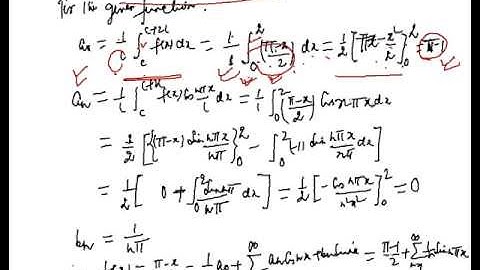 for the given function.
a₀ = 1/c ∫_c^{c+2l} f(x) dx = 1/1 ∫_0^2 (π-x/2) dx = 1/2 [πx - x²/2]_0^2 = π-1
aₙ = 1/l ∫_c^{c+2l} f(x) cos nπx/l dx = 1/1 ∫_0^2 (π-x/2) cos nπx dx
= 1/2 [{(π-x) sin nπx/nπ}_0^2 - ∫_0^2 (-1) sin nπx/nπ dx]
= 1/2 [ 0 + ∫_0^2 sin nπx/nπ dx] = 1/2 [-cos nπx/n²π²]_0^2 = 0
bₙ = 1/nπ
= π-x = 1/2 a₀ + Σ^∞ aₙ cos = π-1/2 + Σ^∞ 1/n sin nπx